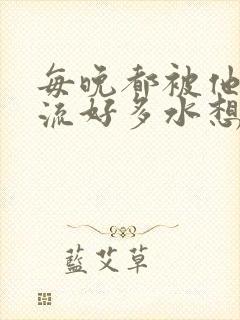 每晚都被他
流好多水想
藍艾草